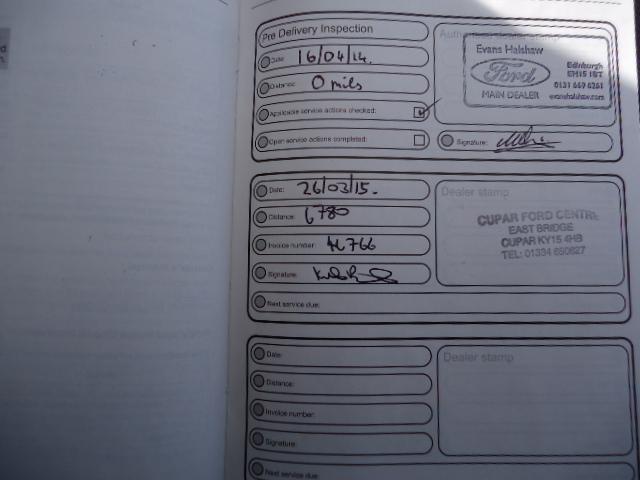 Pre Delivery Inspection
Date: 16/04/14.
Distance: 0 mils
Applicable service actions checked:
Open service actions completed:
Evans Halshaw
Ford
MAIN DEALER
Edinburgh
EH15 1BT
0131 669 6261
evanshalshaw.com
Signature:
Date: 26/03/15.
Distance: 6780
Invoice number: 46766
Signature:
Next service due:
Dealer stamp
CUPAR FORD CENTRE
EAST BRIDGE
CUPAR KY15 4HB
TEL: 01334 650627
Date:
Distance:
Invoice number:
Signature:
Next service due:
Dealer stamp